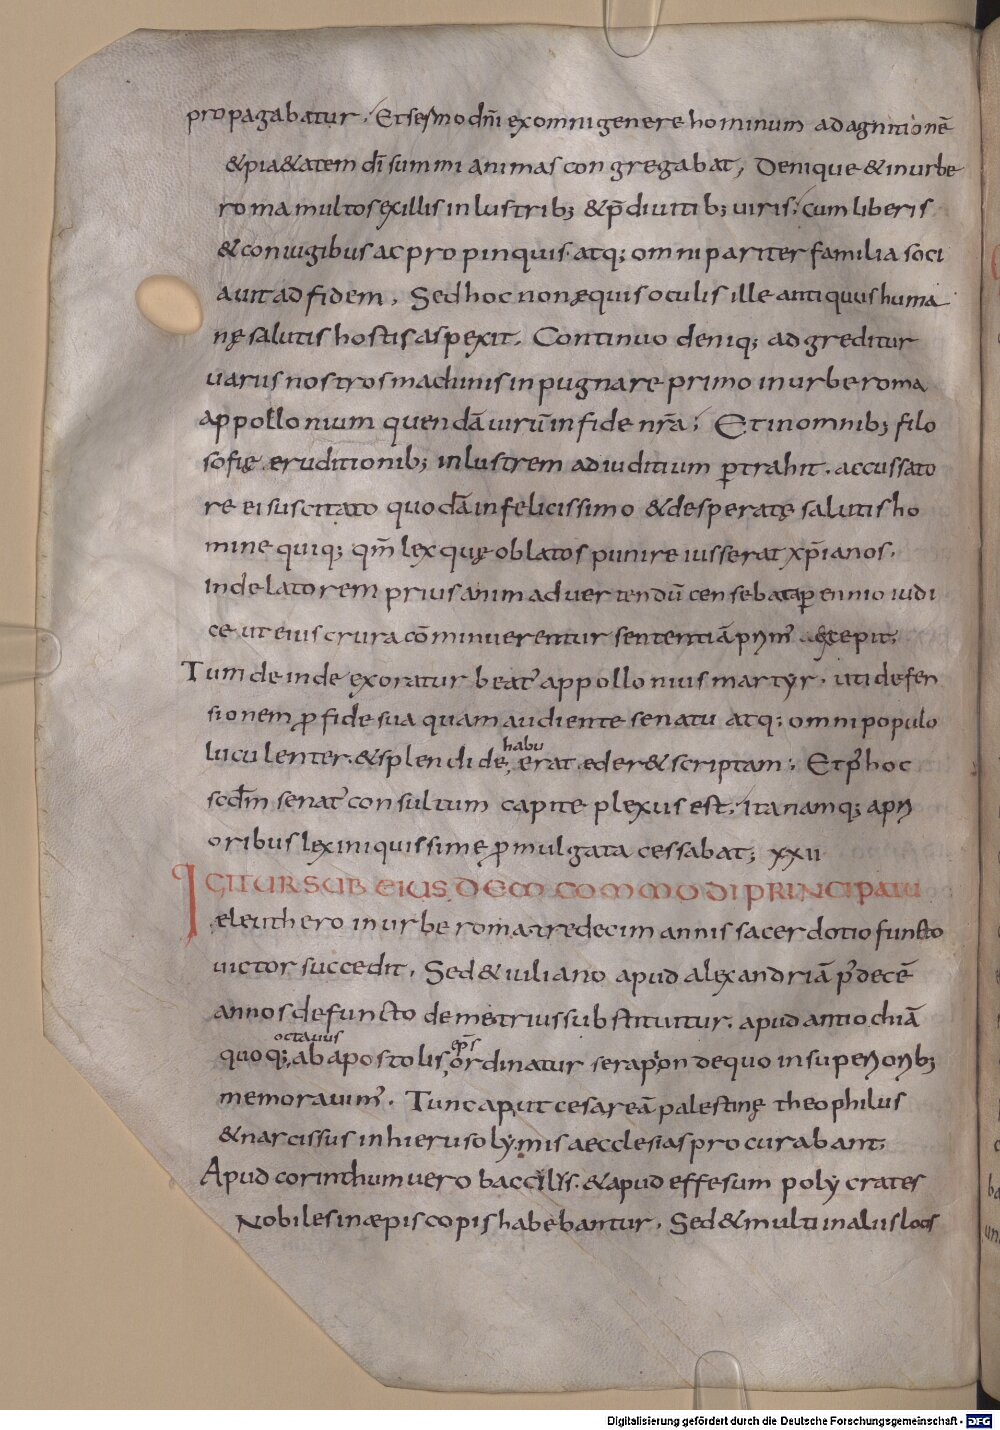 propagabatur. Et sermo dn̄i ex omni genere hominum ad agnitionē
& pia&atem dī summi animas congregabat, Denique & in urbe
roma multos ex illis inlustrib; & p̄diuitib; uiris, cum liberis
& coniugibus ac propinquis. atq; omni pariter familia soci
auit ad fidem. Sed hoc non ęquis oculis ille antiquus huma
nę salutis hostis aspexit. Continuo deniq; adgreditur
uariis nostros machinis inpugnare primo in urbe roma
appollonium quendā uirū in fide nr̄a; Et in omnib; filo
sofię eruditionib; inlustrem ad iuditium ꝑtrahit. accussato
re ei suscitato quodā infelicissimo & desperatę salutis ho
mine quiq; qm̄ lex quę oblatos punire iusserat xp̄ianos.
in delatorem prius animaduertendū censebat a perennio iudi
ce ut eius crura cōminuerentur sententiā excepit;
Tum deinde exoratur beat' appollonius martyr. uti defen
sionem ꝓ fide sua quam audiente senatu atq; omni populo
luculenter. & splendide, habu erat. eder& scriptam; Et p' hoc
scd̄m senat' consultum capite plexus est, ita namq; a pri
oribus lex iniquissime ꝓmulgata cessabat; xxii
IGITUR SUB EIUSDEM COMMODI PRINCIPATU
æleuthero in urbe roma tredecim annis sacerdotio functo
uictor succedit. Sed & iuliano apud alexandriā p' decē
annos defuncto demetrius substituitur. apud antiochiā
octauus ep̄s
quoq; ab apostolis, ordinatur serapion de quo in superiorib;
memorauim'. Tunc aput cesareā palestinę theophilus
& narcissus in hierusolymis aecclesias procurabant;
Apud corinthum uero baccilys. & apud effesum polycrates
Nobiles in æpiscopis habebantur. Sed & multi in aliis locis
Digitalisierung gefördert durch die Deutsche Forschungsgemeinschaft - DFG